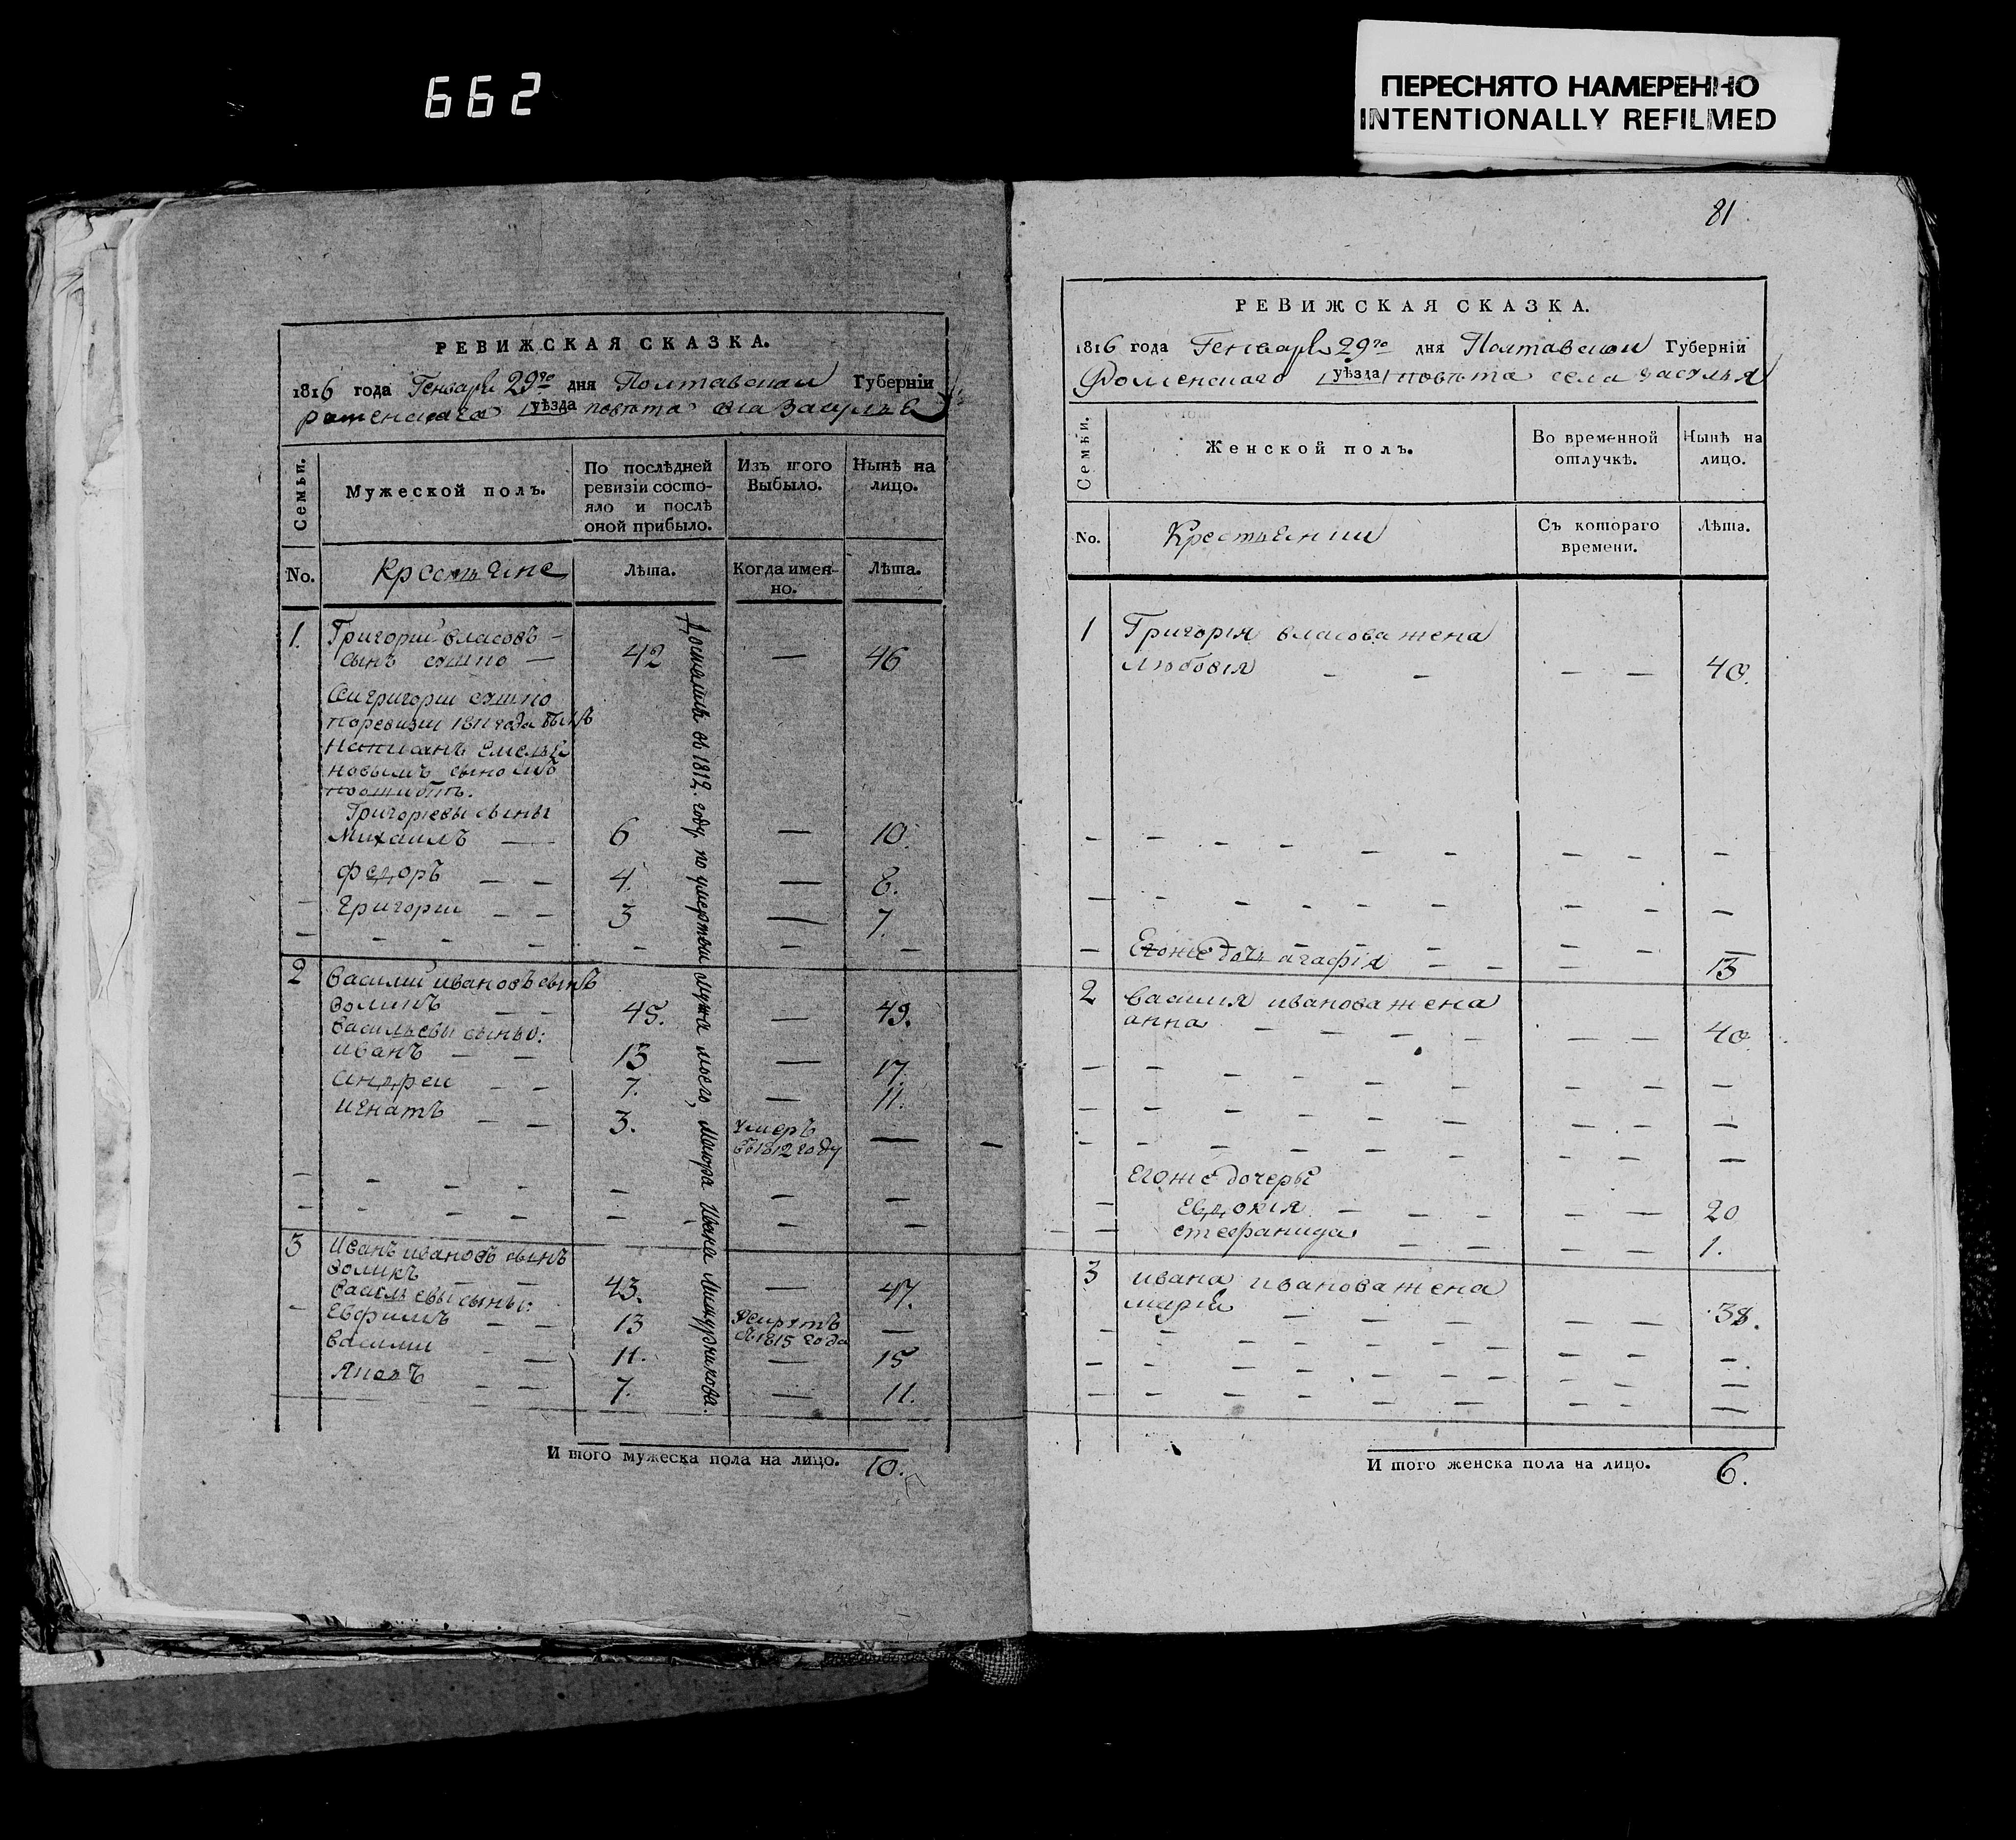 662
ПЕРЕСНЯТО НАМЕРЕННО
INTENTIONALLY REFILMED
РЕВИЖСКАЯ СКАЗКА.
1816 года Генваря 29го дня Полтавской Губерніи
роменскаго уѣзда повѣта села Засулья
Семьи.
Мужеской полъ.
По послѣдней
ревизіи состо-
яло и послѣ
оной прибыло.
Изъ того
Выбыло.
Нынѣ на
лицо.
No.
Крестьяне
Лѣта.
Когда имен-
но.
Лѣта.
1. Григорий власовъ —
сынъ — 42 — 46
Сей григорий
поревизии 1811 года былъ
написанъ Емелья
новымъ сыномъ
поошибкѣ.
Григориевы сыны
Михаилъ — 6 — 10.
федоръ — — 4. — 8.
григории — — 3 — 7.
2 Василий ивановъ сынъ
Золикъ — — 45. — 49.
Васильевы сыны:
иванъ — — 13 — 17.
андреи — — 7. — 11.
игнатъ — — 3. умеръ —
въ 1812 году
3 Иванъ ивановъ сынъ
Золикъ — — 43. — 47.
сыны:
Евфимъ — — 13 —
съ 1815 года
василии — 11. — 15
Яковъ — — 7. — 11.
Достались въ 1812. году, по умертвіи мужа моего, маіора Ивана
И того мужеска пола на лицо. 10.
81
РЕВИЖСКАЯ СКАЗКА.
1816 года Генваря 29го дня Полтавской Губерніи
Роменскаго уѣзда повѣта села засулья
Семьи.
Женской полъ.
Во временной
отлучкѣ.
Нынѣ на
лицо.
No.
Крестьянки
Съ котораго
времени.
Лѣта.
1 Григорія власова жена
любовія — — — — 40.
Егоже дочь агафія — — — 13
2 василия иванова жена
анна — — — — — — 40.
егоже дочеры
Евдокія — — — — — 20
стефанида — — — — 1.
3 ивана иванова жена
марія — — — — — 38.
И того женска пола на лицо. 6.